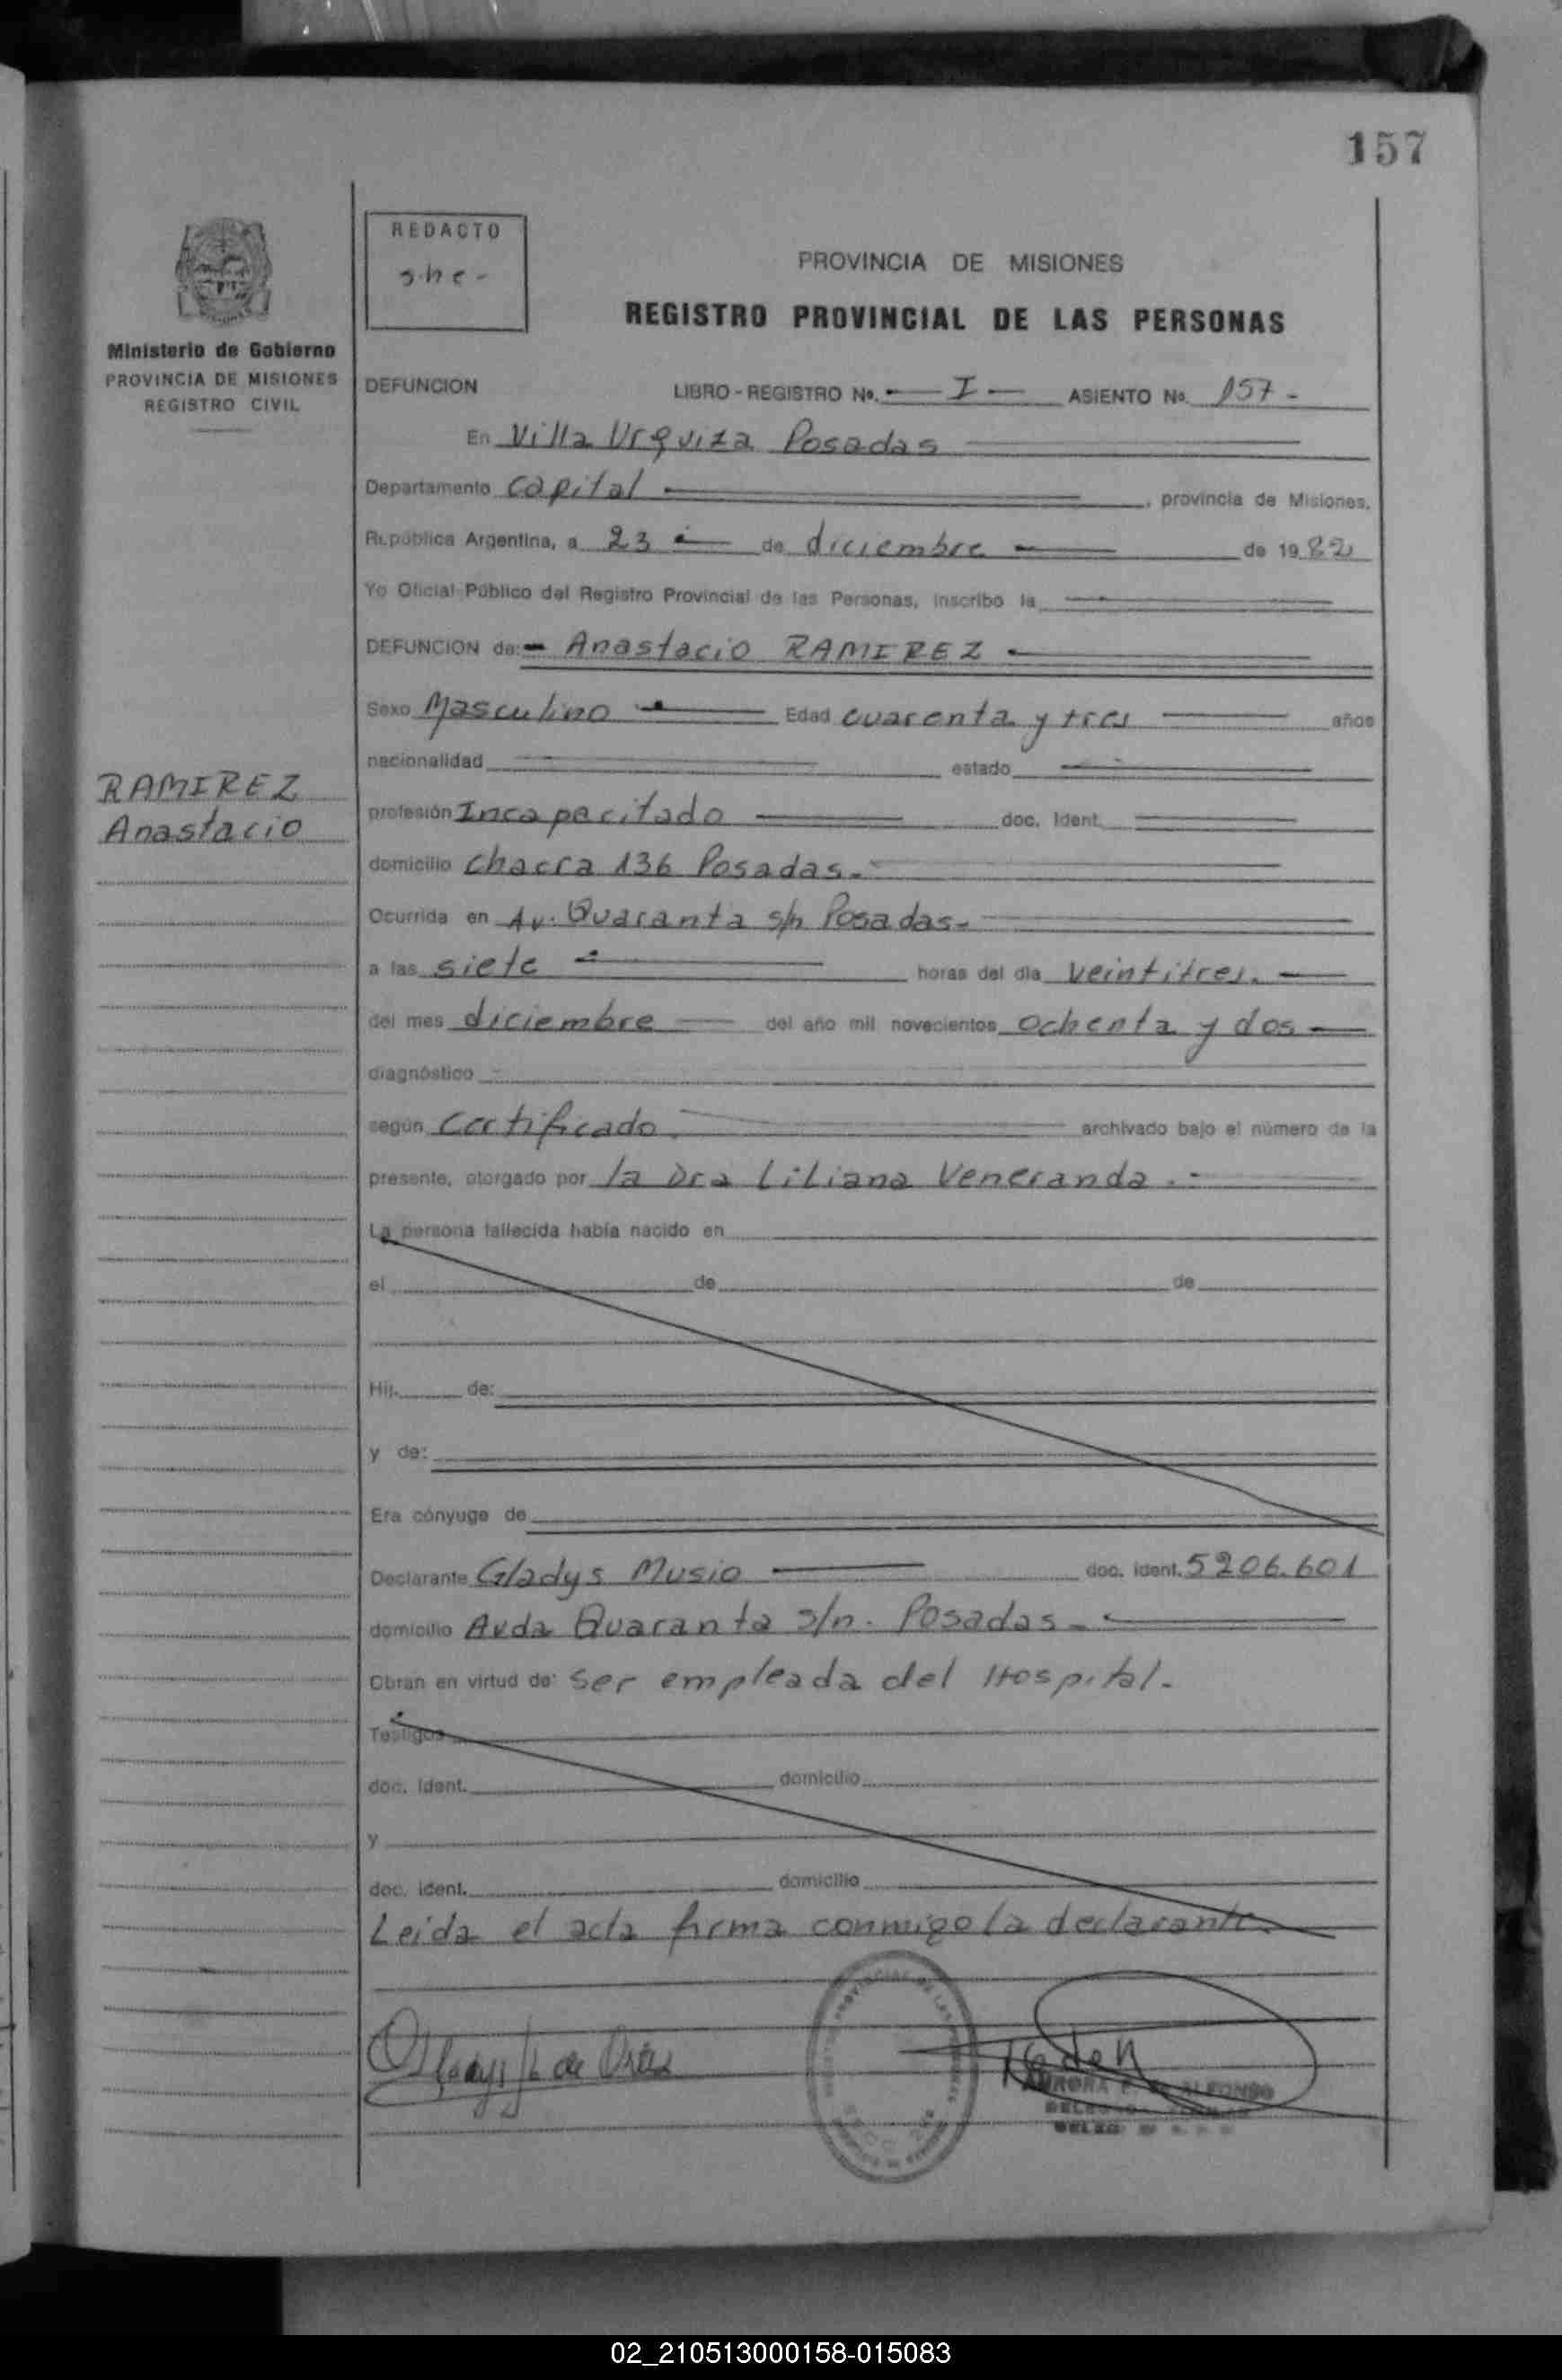 157
REDACTO
s.h.c-
PROVINCIA DE MISIONES
REGISTRO PROVINCIAL DE LAS PERSONAS
Ministerio de Gobierno
PROVINCIA DE MISIONES
REGISTRO CIVIL
DEFUNCION LIBRO - REGISTRO Nº. — I — ASIENTO Nº. 157 -
En Villa Urquiza Posadas
Departamento Capital , provincia de Misiones,
República Argentina, a 23 de diciembre de 1982
Yo Oficial Público del Registro Provincial de las Personas, inscribo la
DEFUNCION de: - Anastacio RAMIREZ
Sexo Masculino Edad cuarenta y tres años
nacionalidad estado
RAMIREZ
Anastacio
profesión Incapacitado doc. Ident.
domicilio chacra 136 Posadas.-
Ocurrida en Av. Quaranta s/n Posadas-
a las siete horas del día veintitres.
del mes diciembre del año mil novecientos ochenta y dos
diagnóstico
según Certificado archivado bajo el número de la
presente, otorgado por la Dra Liliana Veneranda.-
La persona fallecida había nacido en
el de de
Hij. de:
y de:
Era cónyuge de
Declarante Gladys Musio doc. ident. 5206.601
domicilio Avda Quaranta s/n. Posadas-
Obran en virtud de: ser empleada del Hospital.
Testigos
doc. Ident. domicilio
y
doc. ident. domicilio
Leida el acta firma conmigo la declarante.
Gladys de
AURORA ALFONSO
02_210513000158-015083